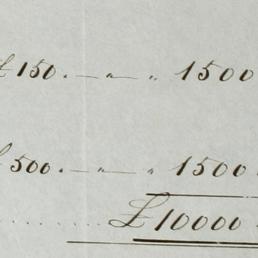 £ 150. — " — " 1500
£ 500. — " — " 1500
........ £ 10000